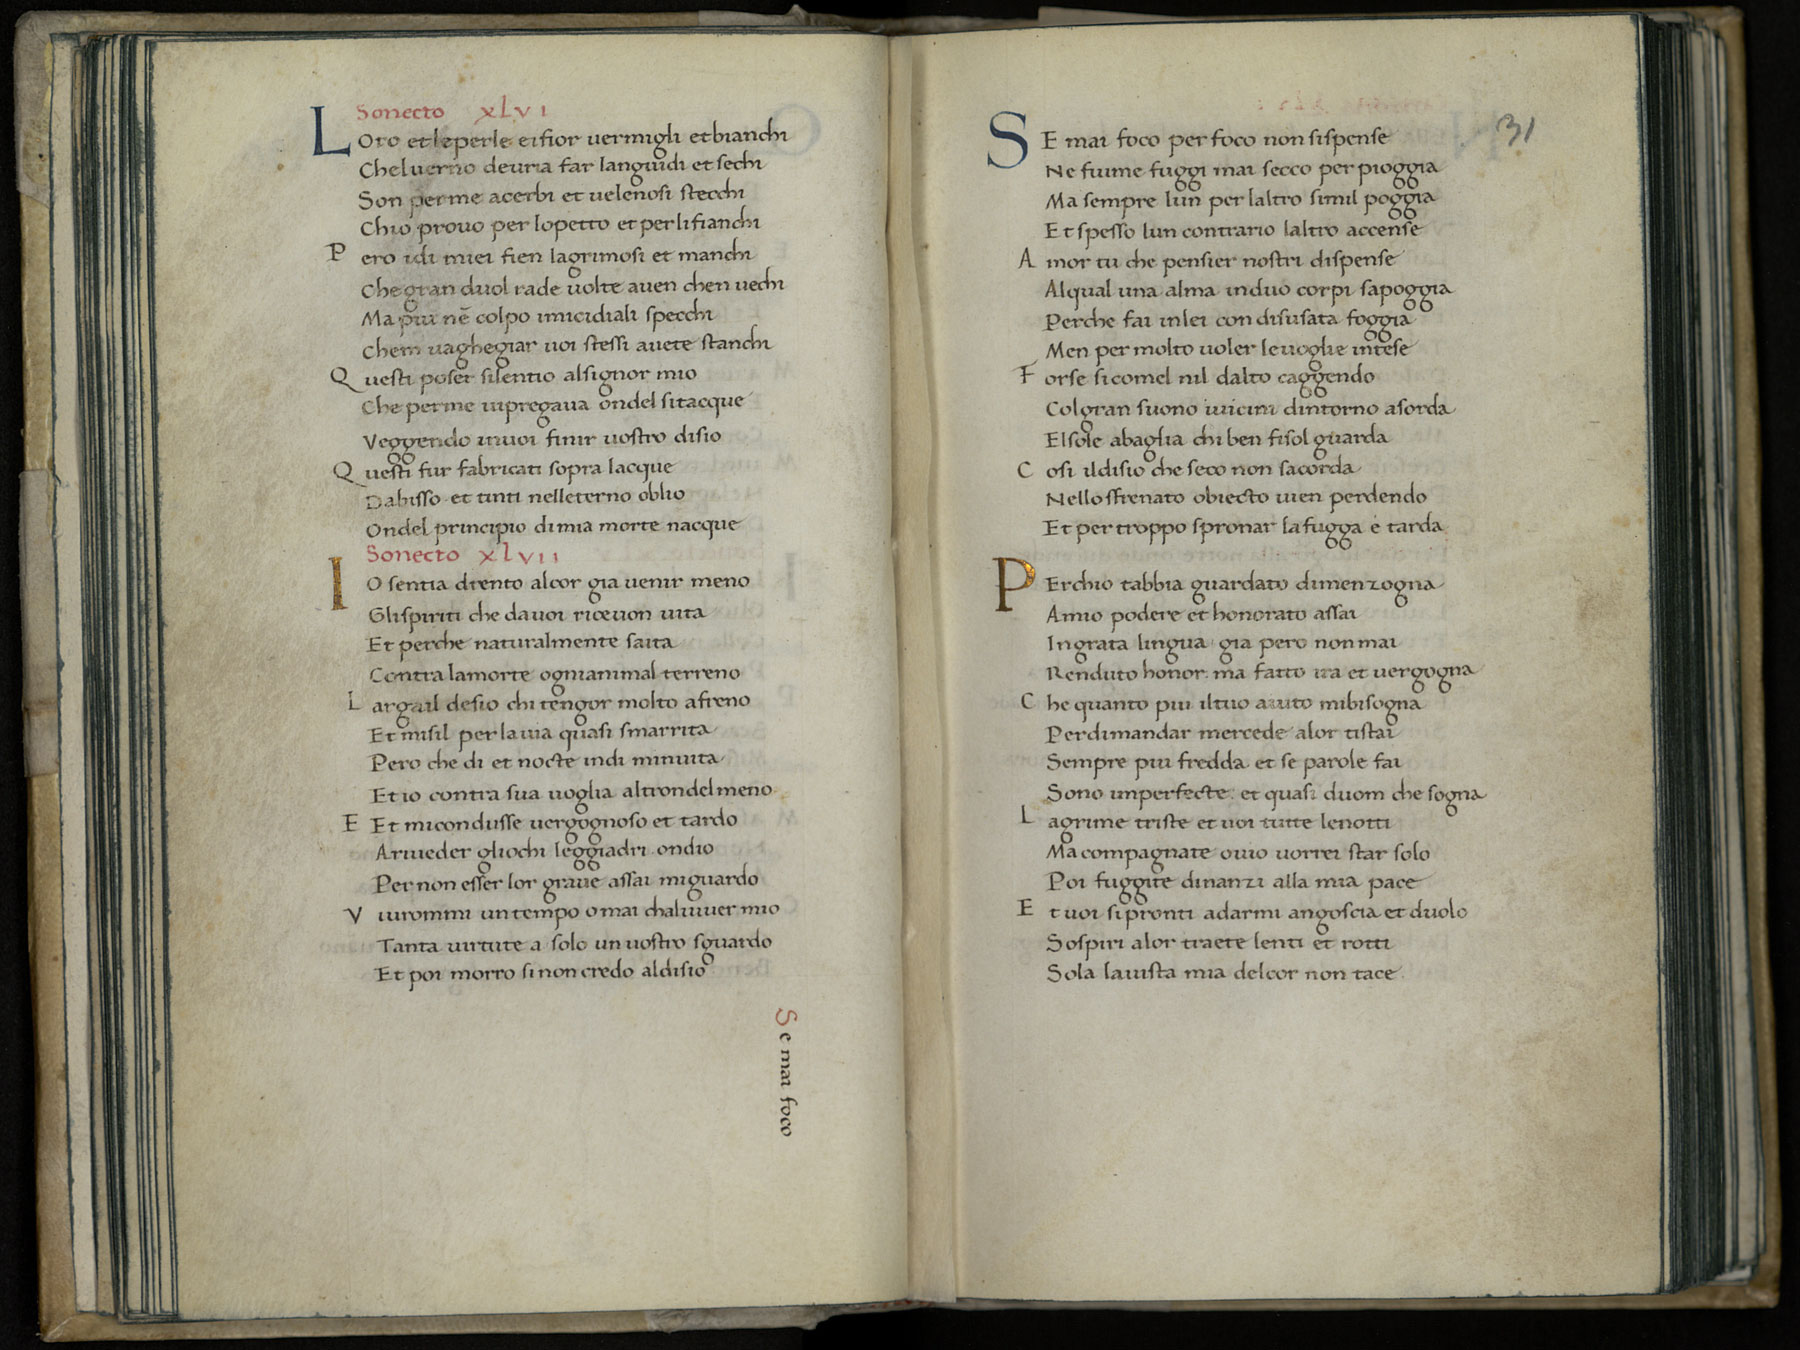 Sonecto xLvi
LOro et leperle eifior vermigli et bianchi
Chel uerno deuria far languidi et sechi
Son per me acerbi et uelenosi stecchi
Chio prouo per lopetto et per li fianchi
Pero idi miei fien lagrimosi et manchi
Che gran duol rade uolte auen chen uechi
Ma piu nē colpo imicidiali specchi
Chem uaghegiar uoi stessi auete stanchi
Questi poser silentio alsignor mio
Che per me uipregaua ondel sitacque
Veggendo inuoi finir uostro disio
Questi fur fabricati sopra lacque
Dabisso et tinti nelleterno oblio
Ondel principio dimia morte nacque
Sonecto xlvii
IO sentia drento alcor gia uenir meno
Glispiriti che dauoi riceuon uita
Et perche naturalmente saita
Contra lamorte ognianimal terreno
Largail desio chi tengor molto afreno
Et misil per lauia quasi smarrita
Pero che di et nocte indi minuita
Et io contra sua uoglia altrondelmeno
E Et micondusse uergognoso et tardo
Ariueder gliochi leggiadri ondio
Per non esser lor graue assai miguardo
Viurommi un tempo omai chaliuiuer mio
Tanta uirtute a solo un uostro sguardo
Et poi morro sinon credo aldisio
Se mai foco
31
SE mai foco per foco non sispense
Ne fiume fuggi mai secco per pioggia
Ma sempre lun per laltro simil poggia
Et spesso lun contrario laltro accense
Amor tu che pensier nostri dispense
Alqual una alma induo corpi sapoggia
Perche fai inlei con disusata foggia
Men per molto uoler le uoglie intese
Forse sicomel nil dalto caggendo
Colgran suono iuicini dintorno asorda
Elsole abaglia chi ben fisol guarda
Cosi ildisio che seco non sacorda
Nello sfrenato obiecto uien perdendo
Et per troppo spronar la fugga e tarda
PErchio tabbia guardato dimenzogna
Amio podere et honorato assai
Ingrata lingua gia pero non mai
Renduto honor. ma fatto ira et uergogna
Che quanto piu iltuo aiuto mibisogna
Perdimandar mercede alor tistai
Sempre piu fredda et se parole fai
Sono imperfecte. et quasi duom che sogna
Lagrime triste et uoi tutte lenotti
Ma compagnate ouio uorrei star solo
Poi fuggite dinanzi alla mia pace
Et uoi sipronti adarmi angoscia et duolo
Sospiri alor traete lenti et rotti
Sola lauista mia delcor non tace